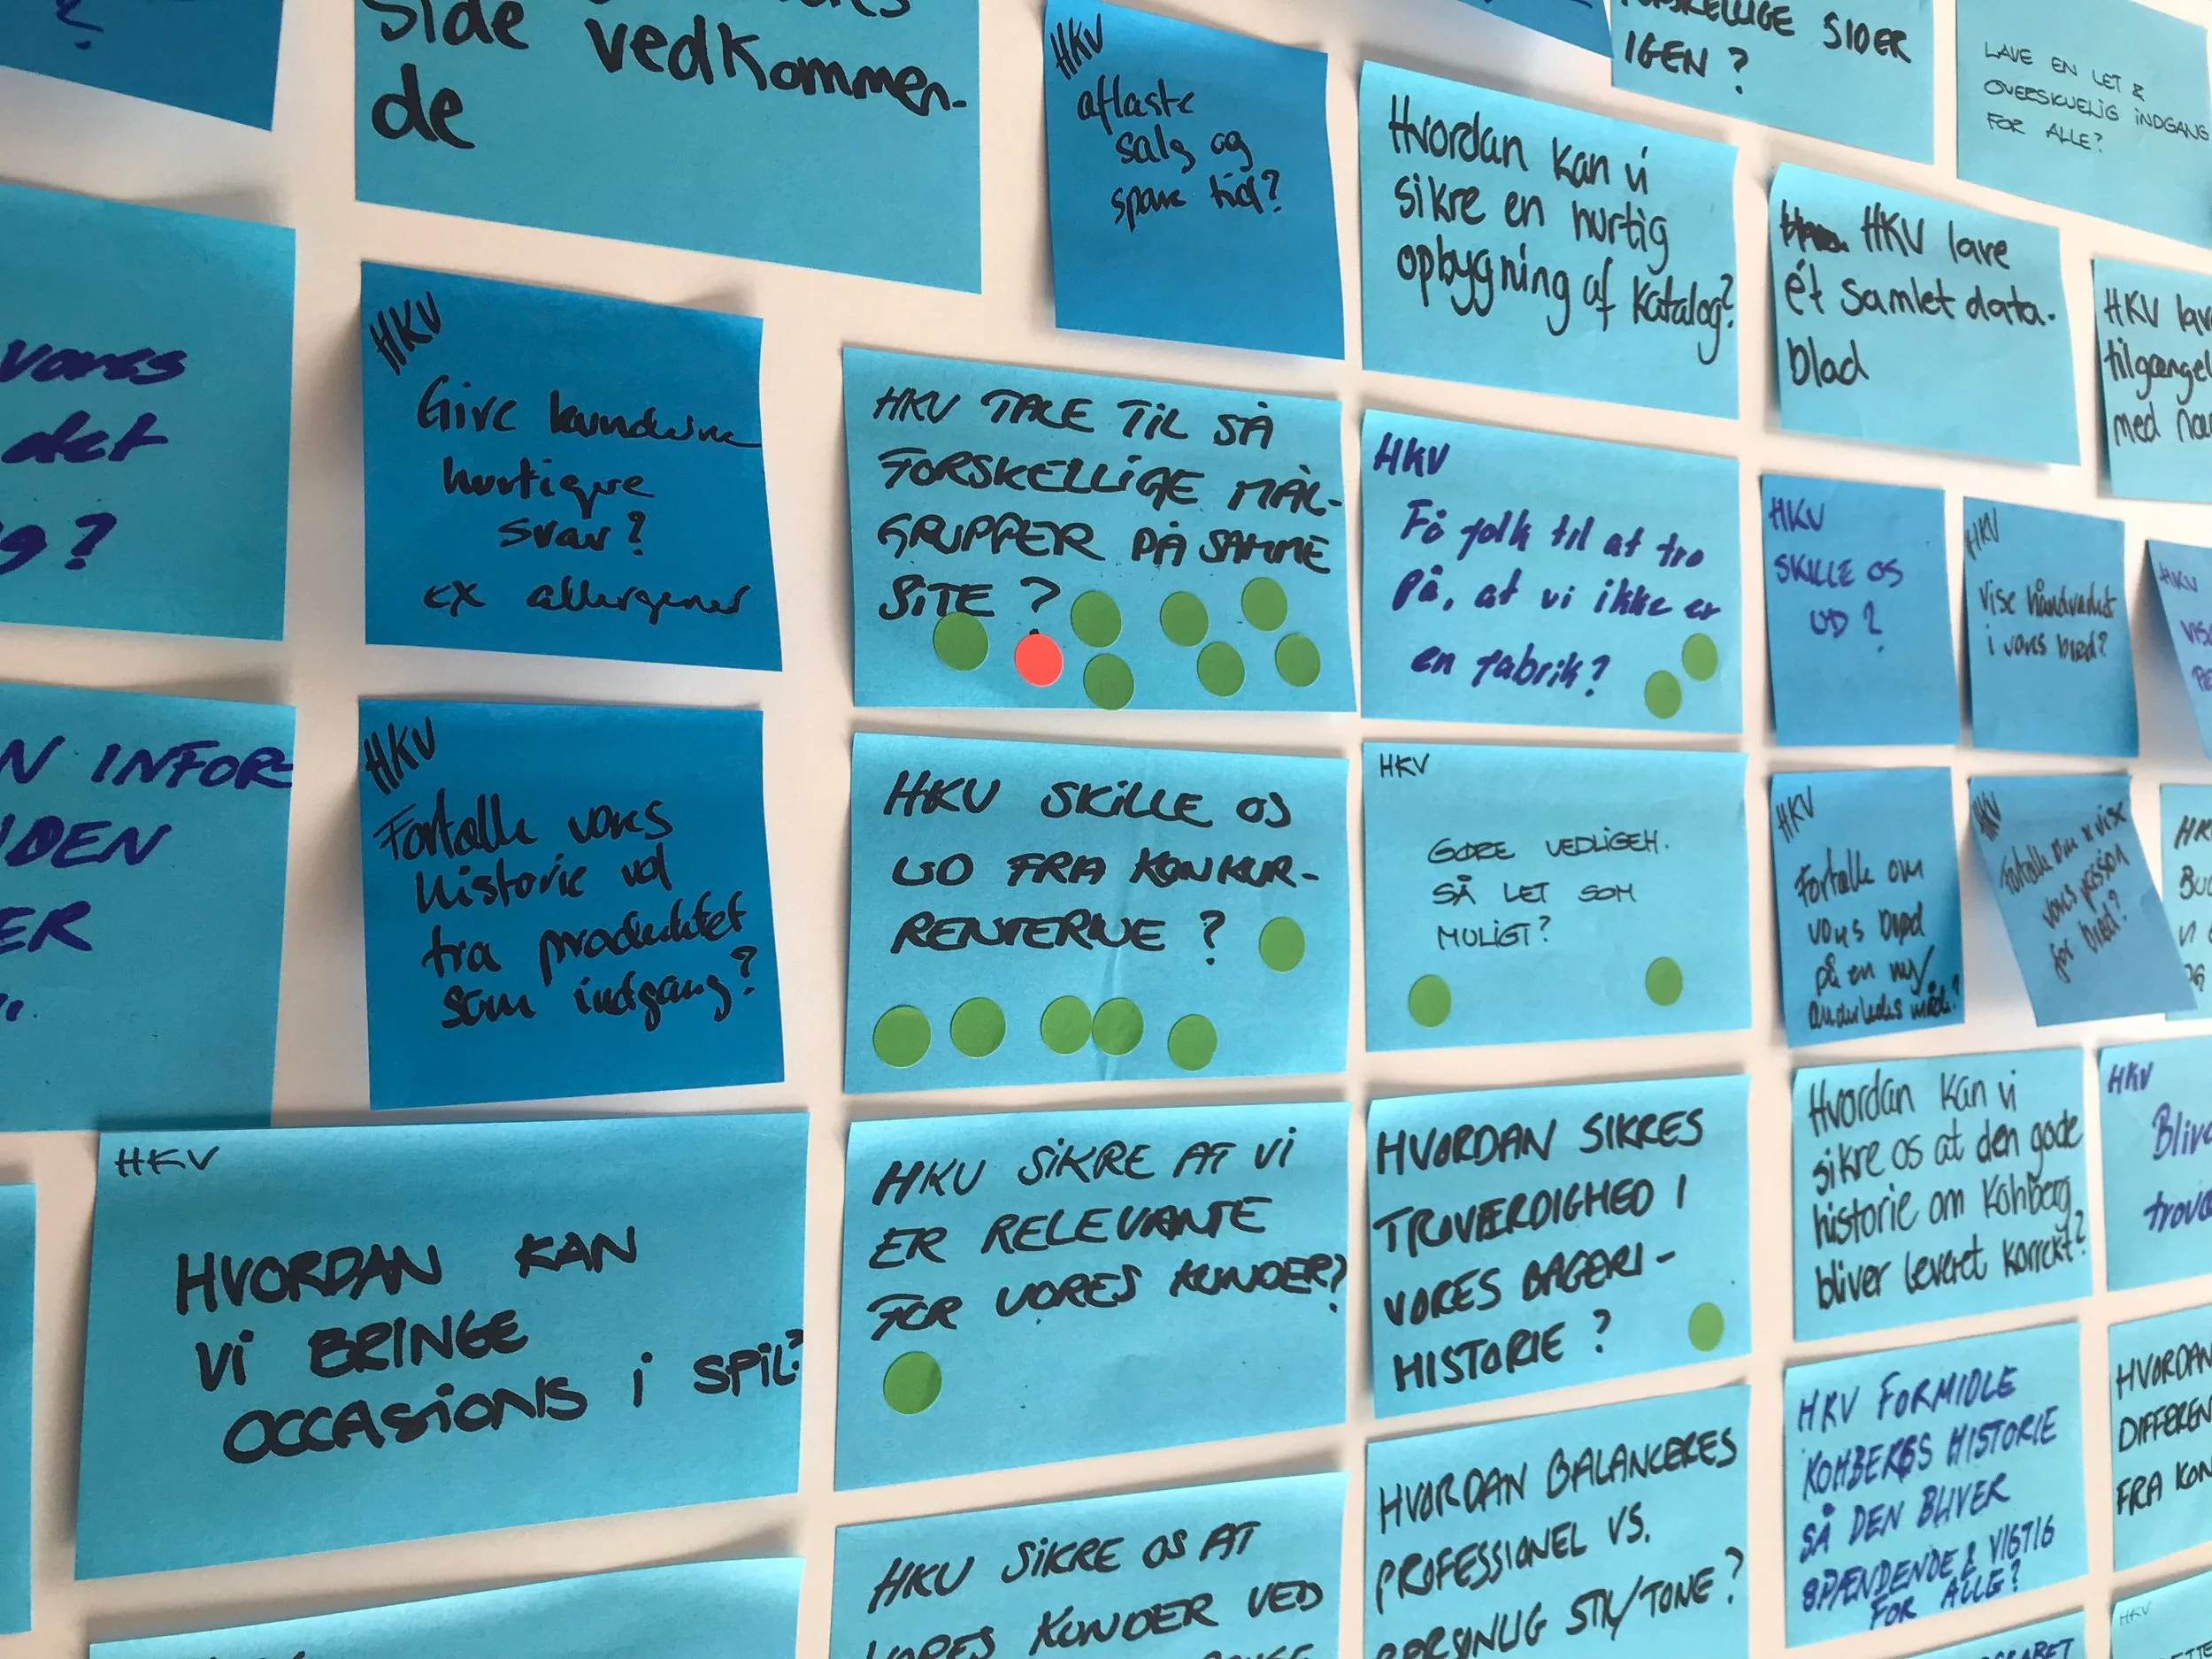 ?
Side vedkommen-
de
HKV
aflaste
salg og
spare tid?
SIDER
IGEN?
LAVE EN LET &
OVERSKUELIG INDGANG
FOR ALLE?
Hvordan kan vi
sikre en hurtig
opbygning af katalog?
HKV lave
ét samlet data-
blad
HKV
tilgængel
med
vores
det
?
HKV
Give kunderne
hurtigere
svar?
ex allergener
HKV TALE TIL SÅ
FORSKELLIGE MÅL-
GRUPPER PÅ SAMME
SITE?
HKV
Få folk til at tro
på, at vi ikke er
en fabrik?
HKV
SKILLE OS
UD?
HKV
Vise håndværket
i vores brød?
HKV
N INFOR-
IDEN
ER
HKV
Fortælle vores
historie ud
fra produktet
som indgang?
HKV SKILLE OS
UD FRA KONKUR-
RENTERNE?
HKV
GØRE VEDLIGEH.
SÅ LET SOM
MULIGT?
HKV
Fortælle om
vores brød
på en ny/
anderledes måde?
HKV
Fortælle om & vise
vores passion
for brød?
HKV
HVORDAN KAN
VI BRINGE
OCCASIONS I SPIL?
HKV SIKRE AT VI
ER RELEVANTE
FOR VORES KUNDER?
HVORDAN SIKRES
TROVÆRDIGHED I
VORES BAGERI-
HISTORIE?
Hvordan kan vi
sikre os at den gode
historie om Kohberg
bliver leveret korrekt?
HKV
Blive
HKV SIKRE OS AT
VORES KUNDER VED
HVORDAN BALANCERES
PROFESSIONEL VS.
PERSONLIG STIL/TONE?
HKV FORMIDLE
KOHBERGS HISTORIE
SÅ DEN BLIVER
SPÆNDENDE & VIGTIG
FOR ALLE?
HVORDAN
DIFFEREN
FRA KON
HKV